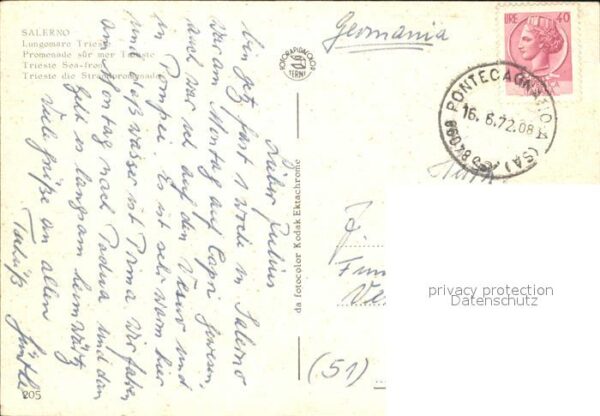 SALERNO
Lungomare Trieste
Promenade sûr mer Trieste
Trieste Sea-front
Trieste die Strandpromenade
Germania
LIRE 40
PONTECAGNANO F. (SA) 84098
16. 6. 72. 08
FOTORAPIDACOLOR
TERNI
da fotocolor Kodak Ektachrome
Lieber Julius
bin jetzt fast 1 Woche in Salerno
war am Montag auf Capri gewesen,
auch war ich auf den Vesuv und
in Pompei. Es ist sehr warm hier
und das Wasser ist Prima. Wir fahren
am Sonntag nach Padua und dann
geht es langsam heimwärts
Viele Grüße an allen
J.
(51)
205
privacy protection
Datenschutz